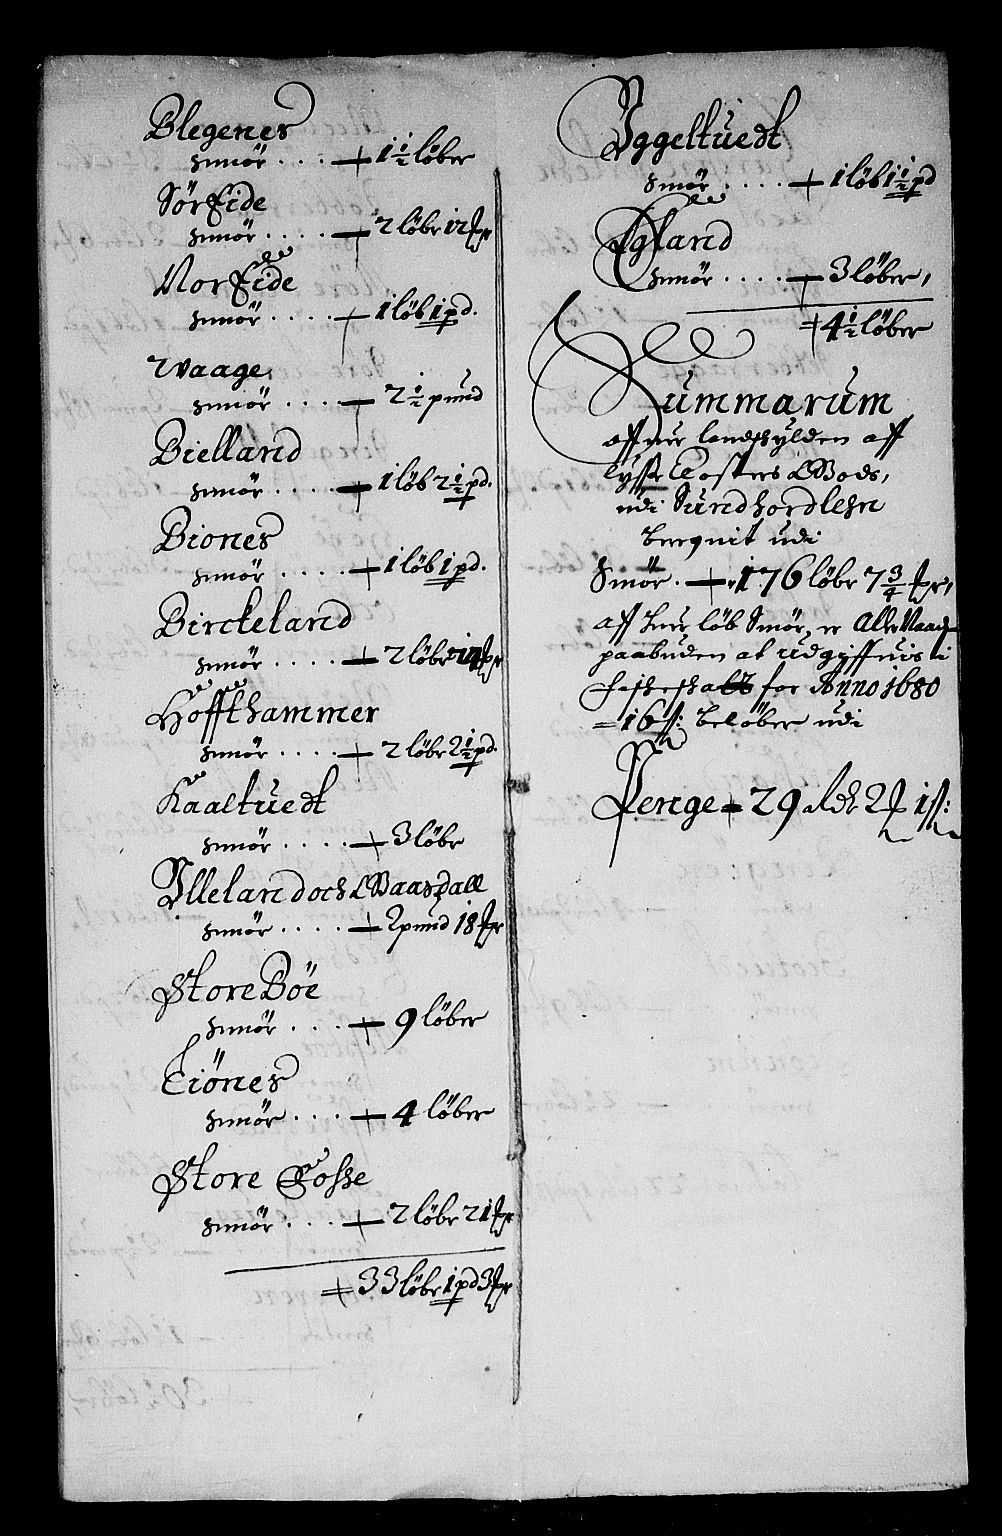 Blegenes
Smör . . . . 1 1/2 löber
Sör Eide
Smör . . . . 2 löbr 12 mr
Nor Eide
Smör . . . . 1 löb 1 pd.
Waage
Smör . . . . 2 1/2 pund
Bielland
Smör . . . . 1 löb 2 1/2 pd.
Biones
Smör . . . . 1 löb 1 pd.
Birckeland
Smör . . . . 2 löber
Höffthammer
Smör . . . . 2 löbr 2 1/2 pd.
Kaaltuedt
Smör . . . . 3 löbr
Ylleland och Waagdall
Smör . . . . 2 pund 18 mr
Store Böe
Smör . . . . 9 löber
Tiönes
Smör . . . . 4 löber
Store Fosse
Smör . . . 2 löbr 21 mr
33 löbr 1 pd 3 mr
Yggeltuedt
Smör . . . . 1 löb 1 1/2 pd
Egland
Smör . . . . 3 löber,
4 1/2 löber
Summarum
aff landschylden aff
Lysse Closters Godz,
udi Sundhordlehn
beregnit udi
Smör . 176 löbr 7 3/4 mr,
aff huer löb Smör, er Aller Naad
paabuden at udgiffuis i
for Anno 1680
16 s: belöber udi
Penge 29 Rdr 2 m 1 s: